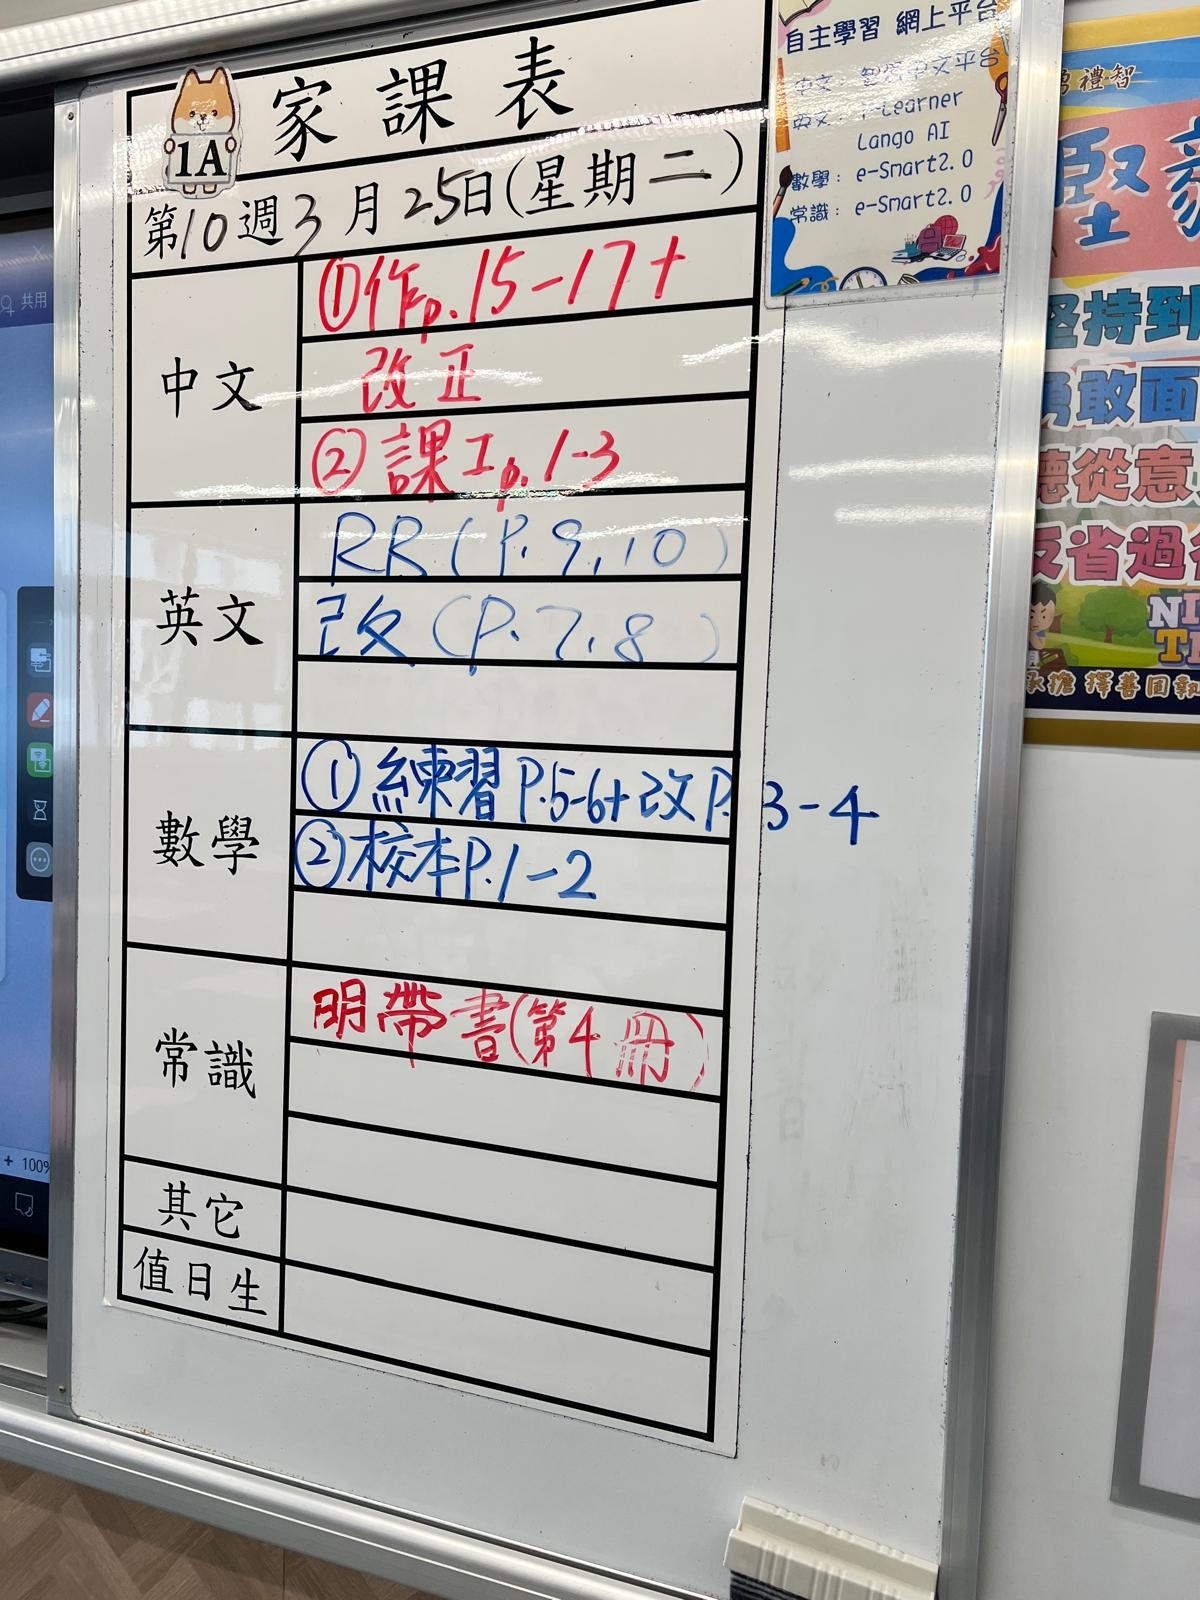 家課表
1A
第10週3月25日(星期二)
中文
①作p.15-17+
改正
②課工p.1-3
英文
RB(P.9,10)
改(P.7,8)
數學
①練習P.5-6+改P.3-4
②校本P.1-2
常識
明帶書(第4冊)
其它
值日生
自主學習 網上平台
英文: i-Learner
Lango AI
數學: e-Smart2.0
常識: e-Smart2.0
禮智
堅
堅持到
勇敢面
德從意
反省過
NI
T
承擔 擇善固執
共用
+ 100%